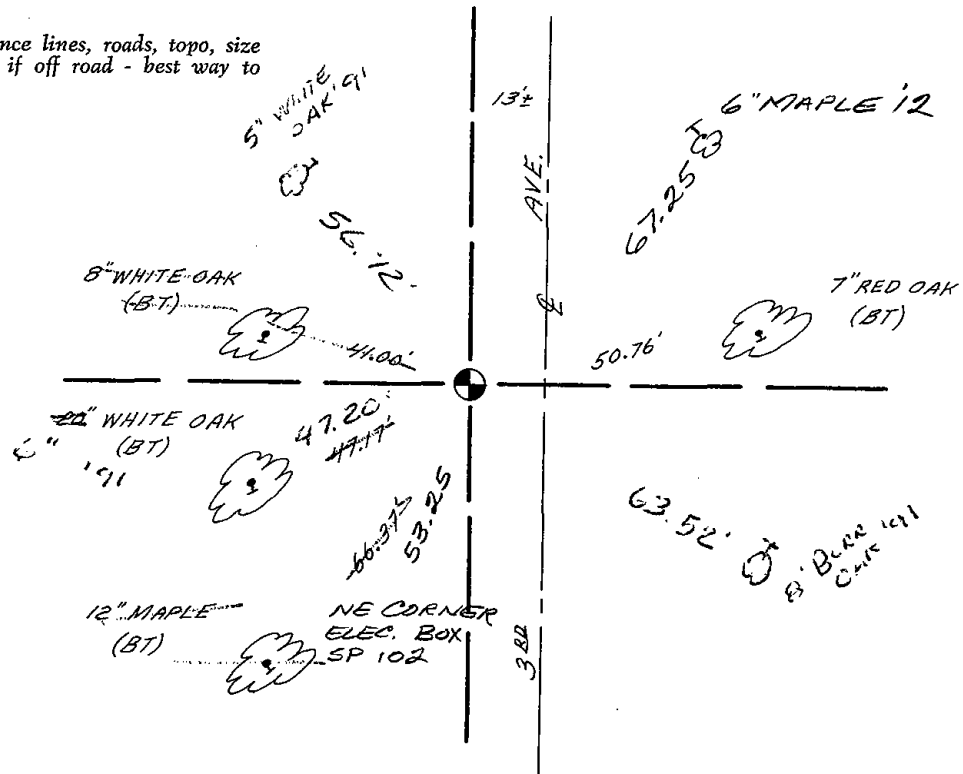 nce lines, roads, topo, size
if off road - best way to
5" WHITE
OAK '91
13'±
6" MAPLE '12
67.25
AVE.
56.12'
8" WHITE OAK
(BT)
41.00'
℄
7" RED OAK
(BT)
50.76'
WHITE OAK
(BT)
6"
'91
47.20'
47.17'
66.37'
53.25
63.52'
8" BURR '91
OAK
12" MAPLE
(BT)
NE CORNER
ELEC. BOX
SP 102
3RD